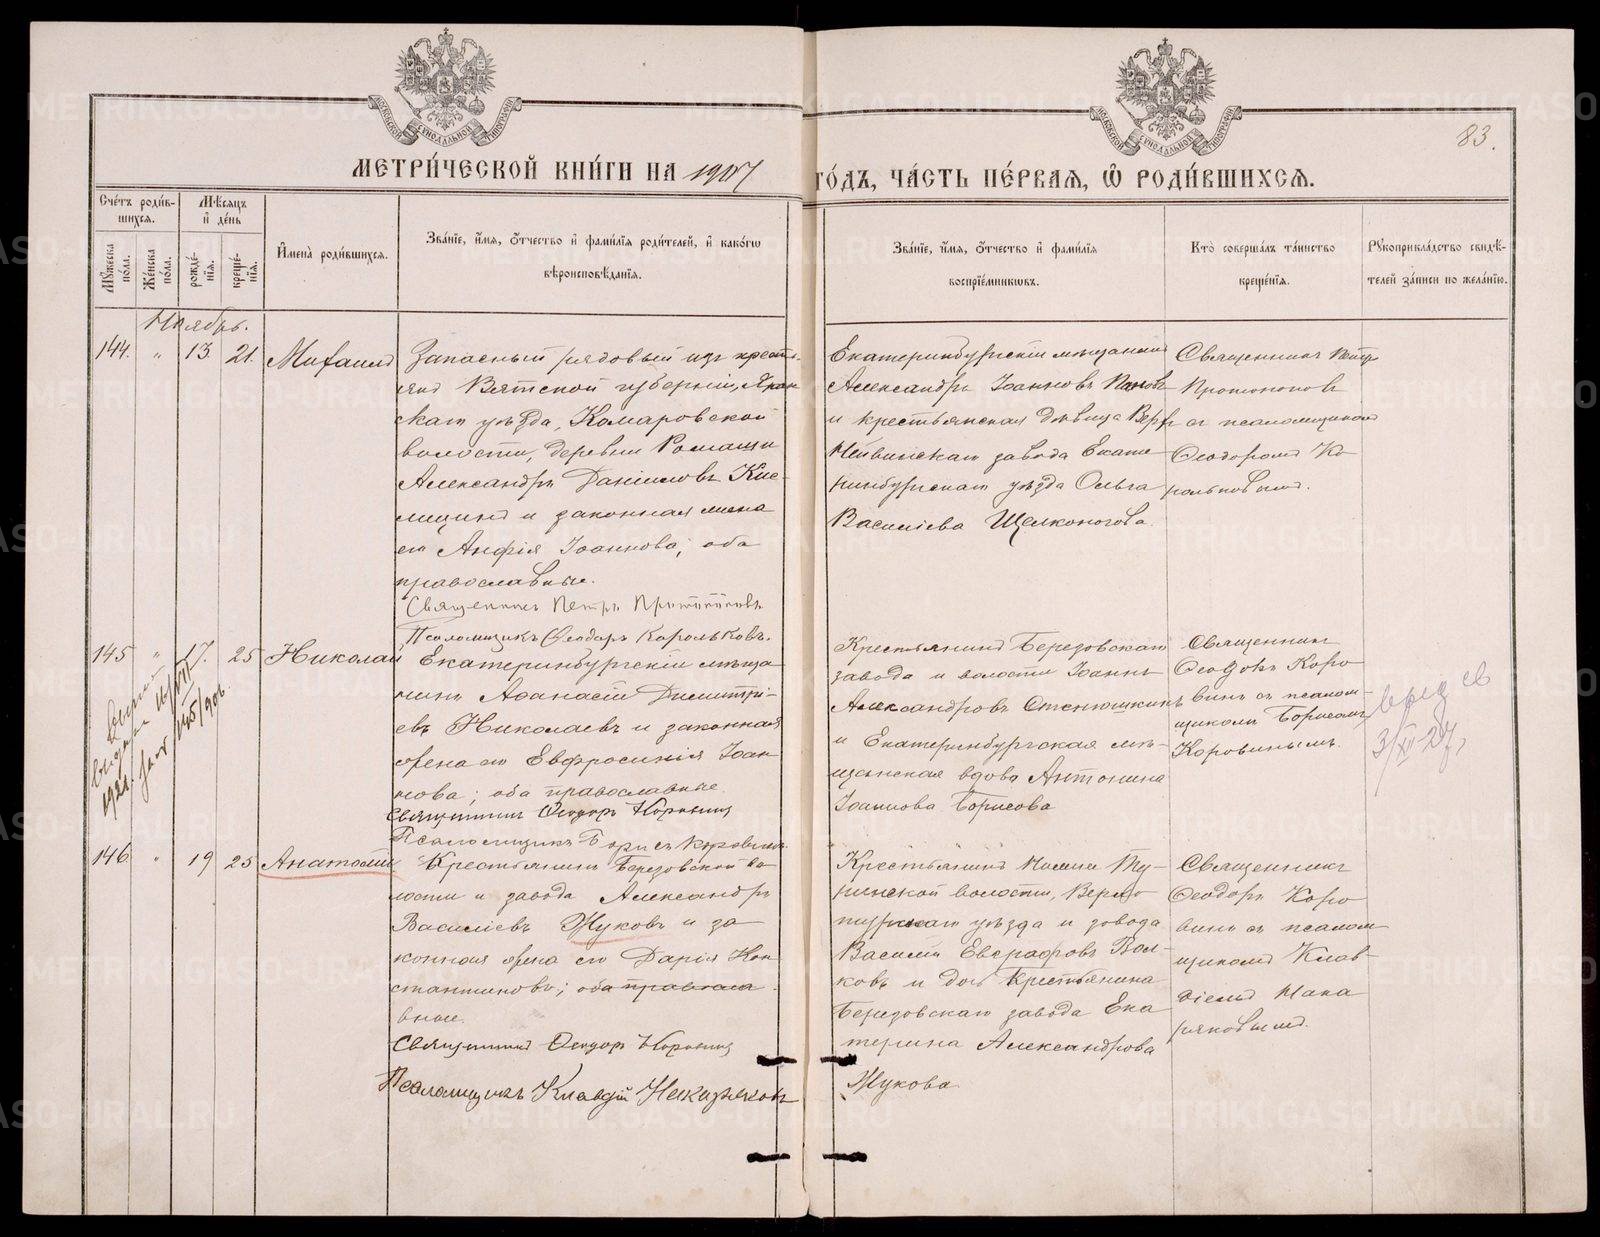 МОСКОВСКОЙ СѴНОДАЛЬНОЙ ТИПОГРАФІИ
МОСКОВСКОЙ СѴНОДАЛЬНОЙ ТИПОГРАФІИ
83.
МЕТРИ́ЧЕСКОЙ КНИ́ГИ НА 1907 ГО́ДЪ, ЧА́СТЬ ПЕ́РВАЯ, Ѡ РОДИ́ВШИХСЯ.
Сче́тъ роди́в-
шихся.
Мѣ́сяцъ
и де́нь
Му́жеска
по́ла.
Же́нска
по́ла.
рожде́-
нїя.
креще́-
нїя.
Имена̀ роди́вшихся.
Зва́нїе, и́мя, о́тчество и фами́лїя роди́телей, и како́гѡ
вѣроисповѣ́данїя.
Зва́нїе, и́мя, о́тчество и фами́лїя
воспрїе́мникѡвъ.
Кто̀ соверша́лъ та́инство
креще́нїя.
Рукоприкла́дство свидѣ́-
телей за́писи по жела́нїю.
Ноябрь.
144. " 13 21. Михаилъ
Запасный рядовый изъ кресть-
янъ Вятской губерніи, Яран
скаго уѣзда, Комаровской
волости, деревни Ромащи
Александръ Даніиловъ Кис-
лицинъ и законная жена
его Анфія Іоаннова; оба
православные.
Священникъ Петръ Протопоповъ
Псаломщикъ Ѳеодоръ Корольковъ.
Екатеринбургскій мѣщанинъ
Александръ Іоанновъ Пановъ
и крестьянская дѣвица Верх
Нейвинскаго завода Екате-
ринбургскаго уѣзда Ольга
Василіева Щелконогова.
Священникъ Петръ
Протопоповъ
съ псаломщикомъ
Ѳеодоромъ Ко
рольковымъ.
145 " 17. 25 Николай
Екатеринбургскій мѣща
нинъ Аѳанасій Димитрі-
евъ Николаевъ и законная
жена его Евфросинія Іоан
нова; оба православные.
Священникъ Ѳеодоръ Коровинъ
Псаломщикъ Борисъ Коровинъ
Крестьянинъ Березовскаго
завода и волости Іоаннъ
Александровъ Стенюшкинъ
и Екатеринбургская мѣ-
щанская вдова Антонина
Іоаннова Борисова
Священник
Ѳеодоръ Коро
винъ съ псалом-
щикомъ Борисомъ
Коровинымъ.
146 " 19 25 Анатолій
Крестьянинъ Березовской во
лости и завода Александръ
Василіевъ Жуковъ и за
конная жена его Дарія Кон
стантинова; оба правосла
вные.
Священникъ Ѳеодоръ Коровинъ
Псаломщикъ Клавдій
Крестьянинъ
волости, Верхо
турскаго уѣзда и завода
Василій Евграфовъ Вол-
ковъ и дочь Крестьянина
Березовскаго завода Ека
терина Александрова
Жукова.
Священникъ
Ѳеодоръ Коро
винъ съ псалом
щикомъ Клав-
діемъ Мака
ряковымъ.
METRIKI.GASO-URAL.RU